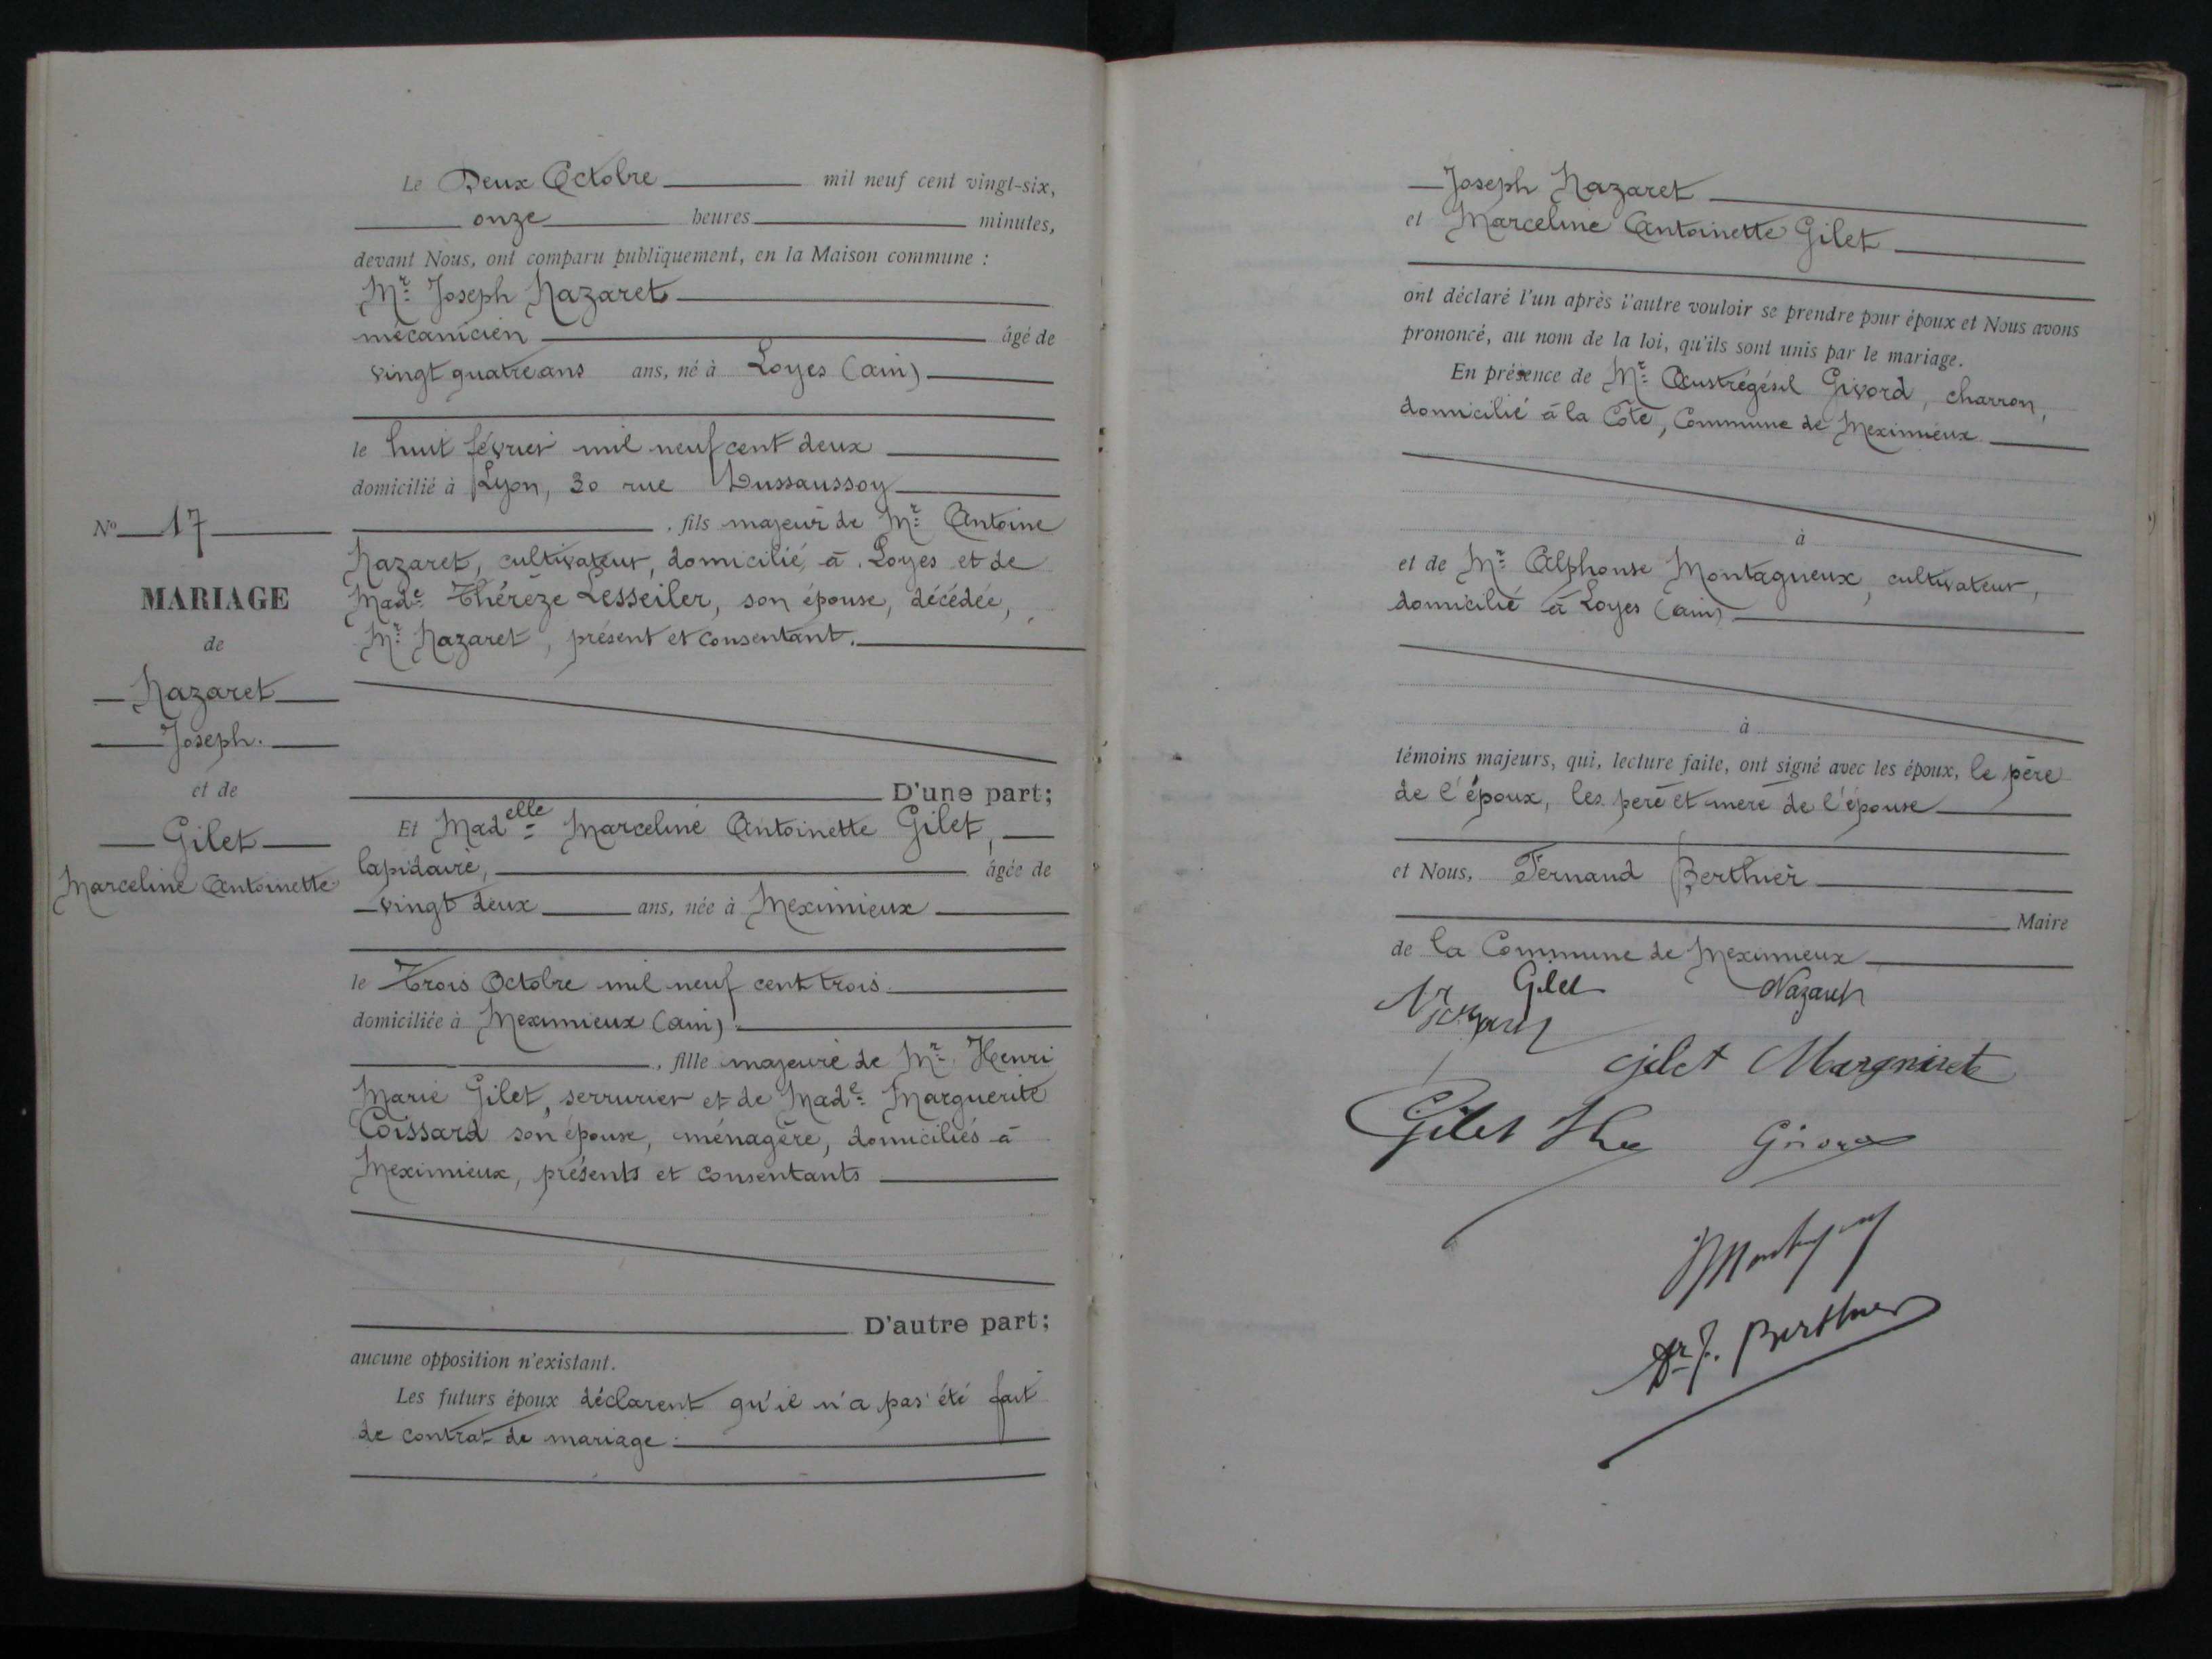 Le Deux Octobre mil neuf cent vingt-six,
onze heures minutes,
devant Nous, ont comparu publiquement, en la Maison commune :
Mr Joseph Nazaret
mécanicien âgé de
vingt quatre ans ans, né à Loyes (ain)
le huit février mil neuf cent deux
domicilié à Lyon, 30 rue Dussaussoy
, fils majeur de Mr Antoine
Nazaret, cultivateur, domicilié à Loyes et de
Made Thérèze Lesseiler, son épouse, décédée,
Mr Nazaret, présent et consentant.
D'une part;
No 17
MARIAGE
de
Nazaret
Joseph.
et de
Gilet
Marceline Antoinette
Et Madelle Marceline Antoinette Gilet,
lapidaire, âgée de
vingt deux ans, née à Meximieux
le Trois Octobre mil neuf cent trois
domiciliée à Meximieux (ain)
, fille majeure de Mr Henri
Marie Gilet, serrurier et de Made Marguerite
Coissard son épouse, ménagère, domiciliés à
Meximieux, présents et consentants
D'autre part;
aucune opposition n'existant.
Les futurs époux déclarent qu'il n'a pas été fait
de contrat de mariage.
Joseph Nazaret
et Marceline Antoinette Gilet
ont déclaré l'un après l'autre vouloir se prendre pour époux et Nous avons
prononcé, au nom de la loi, qu'ils sont unis par le mariage.
En présence de Mr Austrégésil Givord, charron,
domicilié à la Côte, Commune de Meximieux
à
et de Mr Alphonse Montagneux, cultivateur,
domicilié à Loyes (ain)
à
témoins majeurs, qui, lecture faite, ont signé avec les époux, le père
de l'époux, les père et mère de l'épouse
et Nous, Fernand Berthier
Maire
de la Commune de Meximieux
Gilet Nazaret
Gilet Marguerite
Gilet Givord
Dr F. Berthier